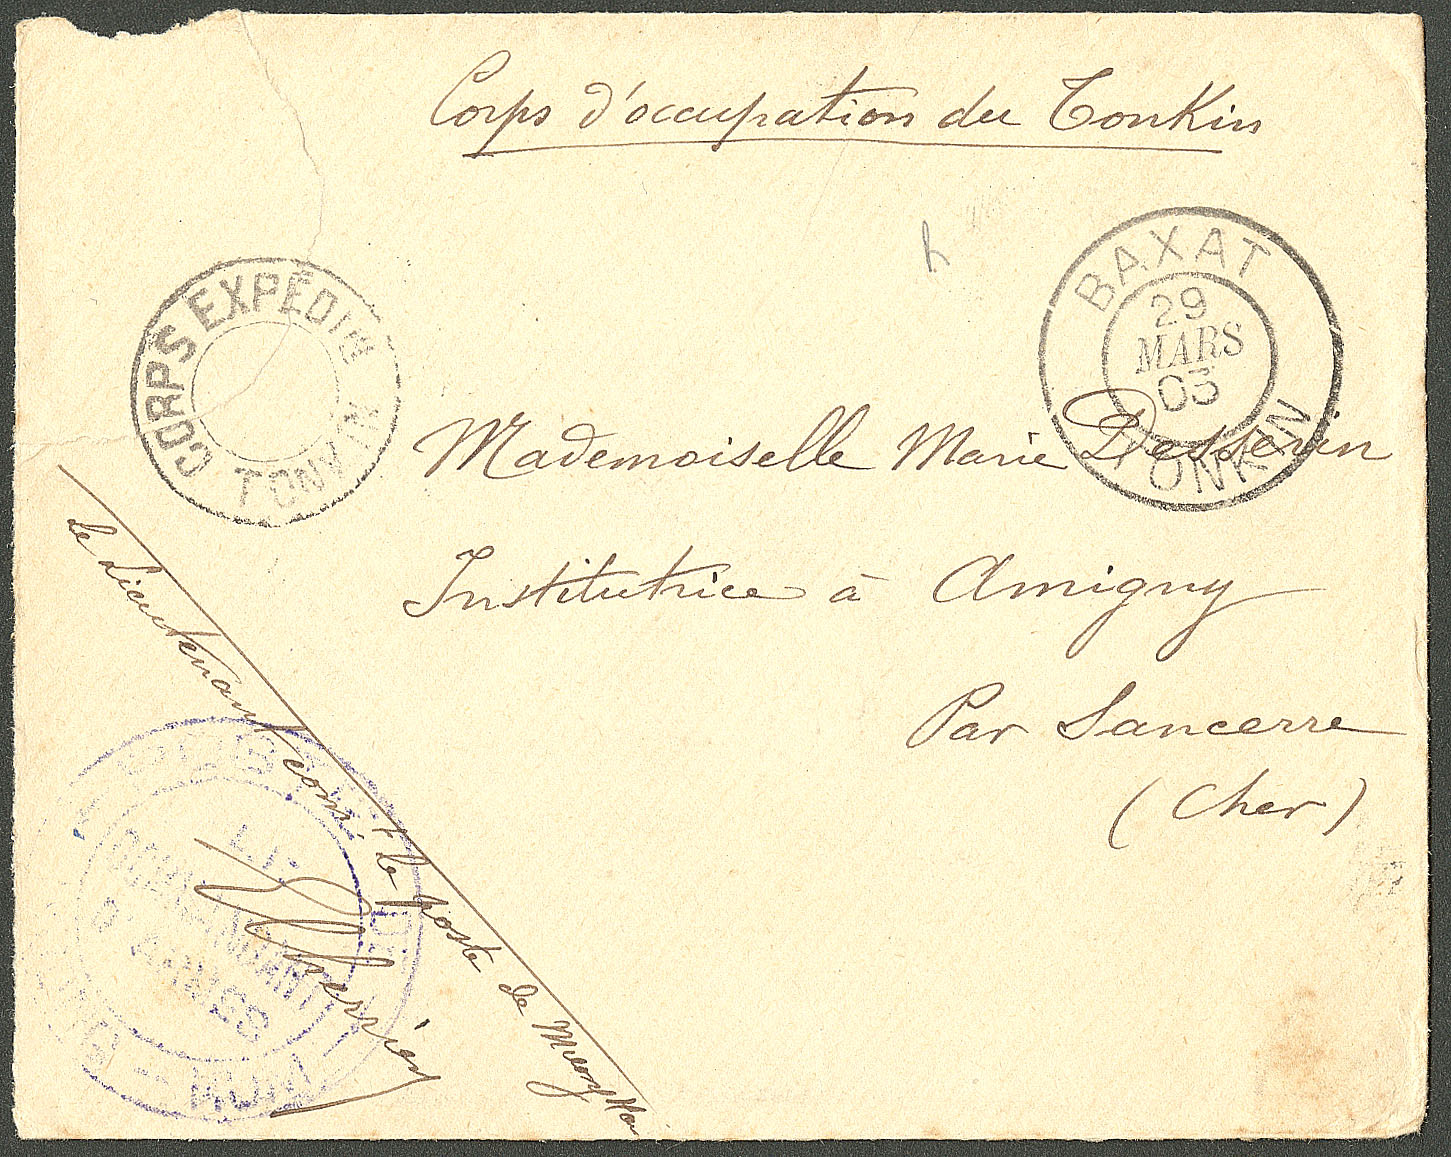 Corps d'occupation du Tonkin
CORPS EXPÉDIRE
TONKIN
BAXAT
29
MARS
03
TONKIN
Mademoiselle Marie Desserin
Institutrice à Amigny
Par Sancerre
(Cher)
le Lieutenant comt le poste de
LE
COMMANDANT
D'ARMES